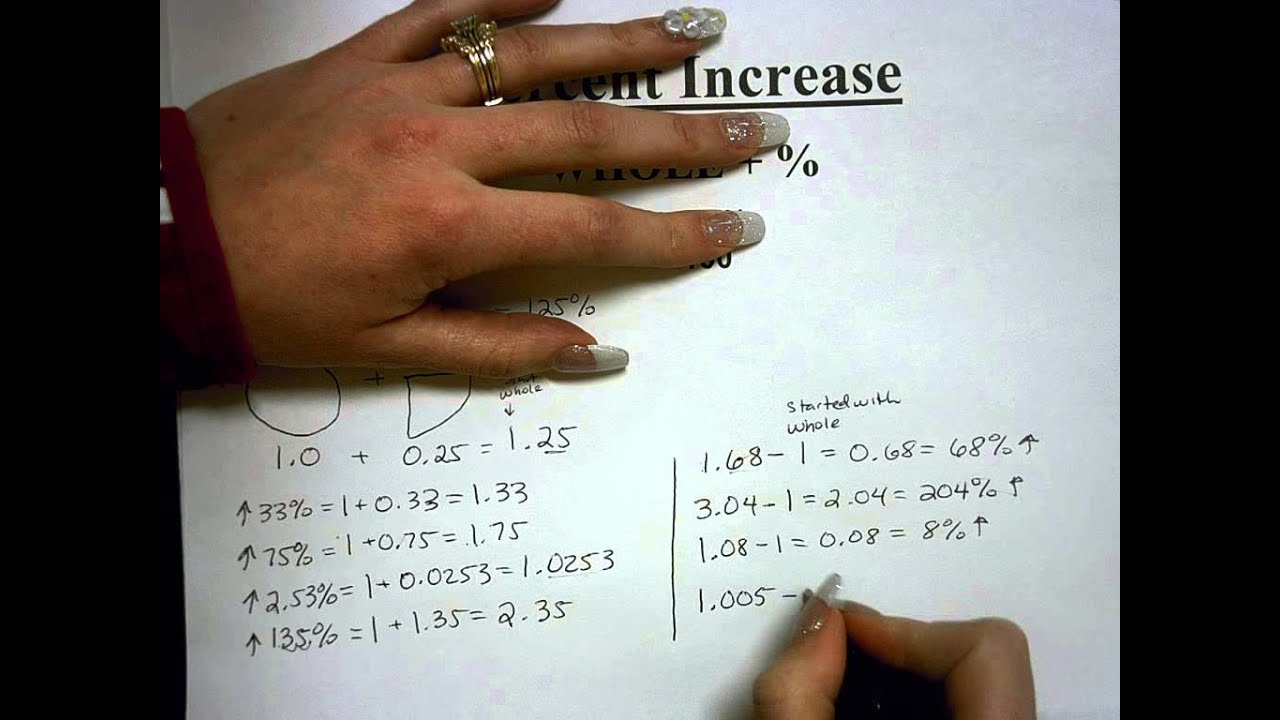 Percent Increase
WHOLE + %
100
= 125%
whole
↓
+
1.0 + 0.25 = 1.25
↑ 33% = 1 + 0.33 = 1.33
↑ 75% = 1 + 0.75 = 1.75
↑ 2.53% = 1 + 0.0253 = 1.0253
↑ 135% = 1 + 1.35 = 2.35
started with
whole
1.68 - 1 = 0.68 = 68% ↑
3.04 - 1 = 2.04 = 204% ↑
1.08 - 1 = 0.08 = 8% ↑
1.005 -